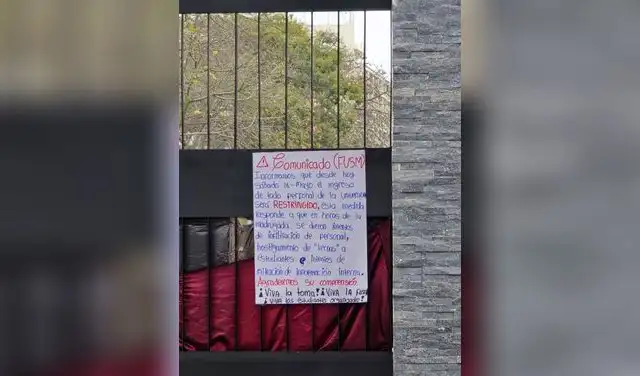 ⚠ Comunicado (FUSM)
Informamos que desde hoy
sábado 16-Mayo el ingreso
de todo personal de la universidad
será RESTRINGIDO, esta medida
responde a que en horas de la
madrugada se dieron intentos
de infiltración de personal,
hostigamiento de "ternas" a
estudiantes e intentos de
filtración de información interna.
Agradecemos su comprensión
¡Viva la toma! ¡Viva la FUSM
¡Viva los estudiantes organizados!